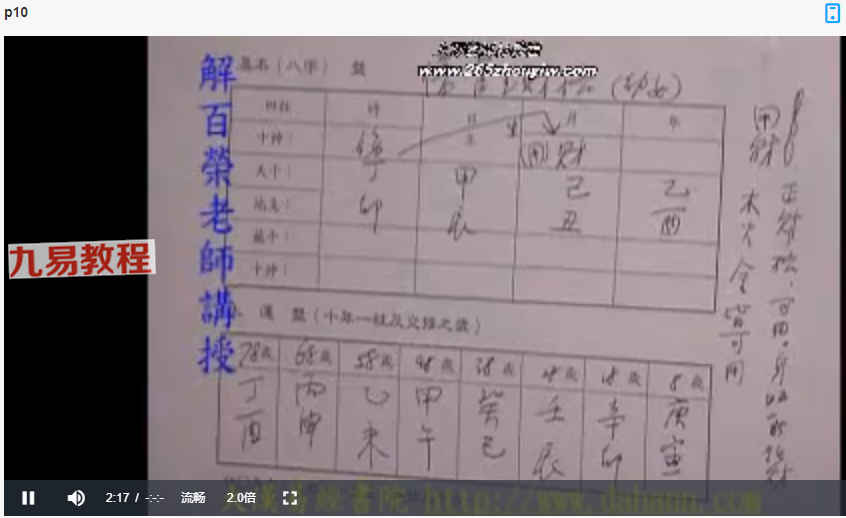 p10
www.265zhouyiw.com
基本(八字) 盤
(幼女)
解百榮老師講授
九易教程
四柱 時 日 月 年
十神: 傷 主 (用)財
天干: 丁 甲 己 乙
地支: 卯 辰 丑 酉
藏干:
十神:
大運 盤(十年一柱及交接之歲)
78歲 68歲 58歲 48歲 38歲 28歲 18歲 8歲
丁 丙 乙 甲 癸 壬 辛 庚
酉 申 未 午 巳 辰 卯 寅
用財
木火金皆可用
2:17 / -:-:- 流畅 2.0倍
http://www.dahann.com